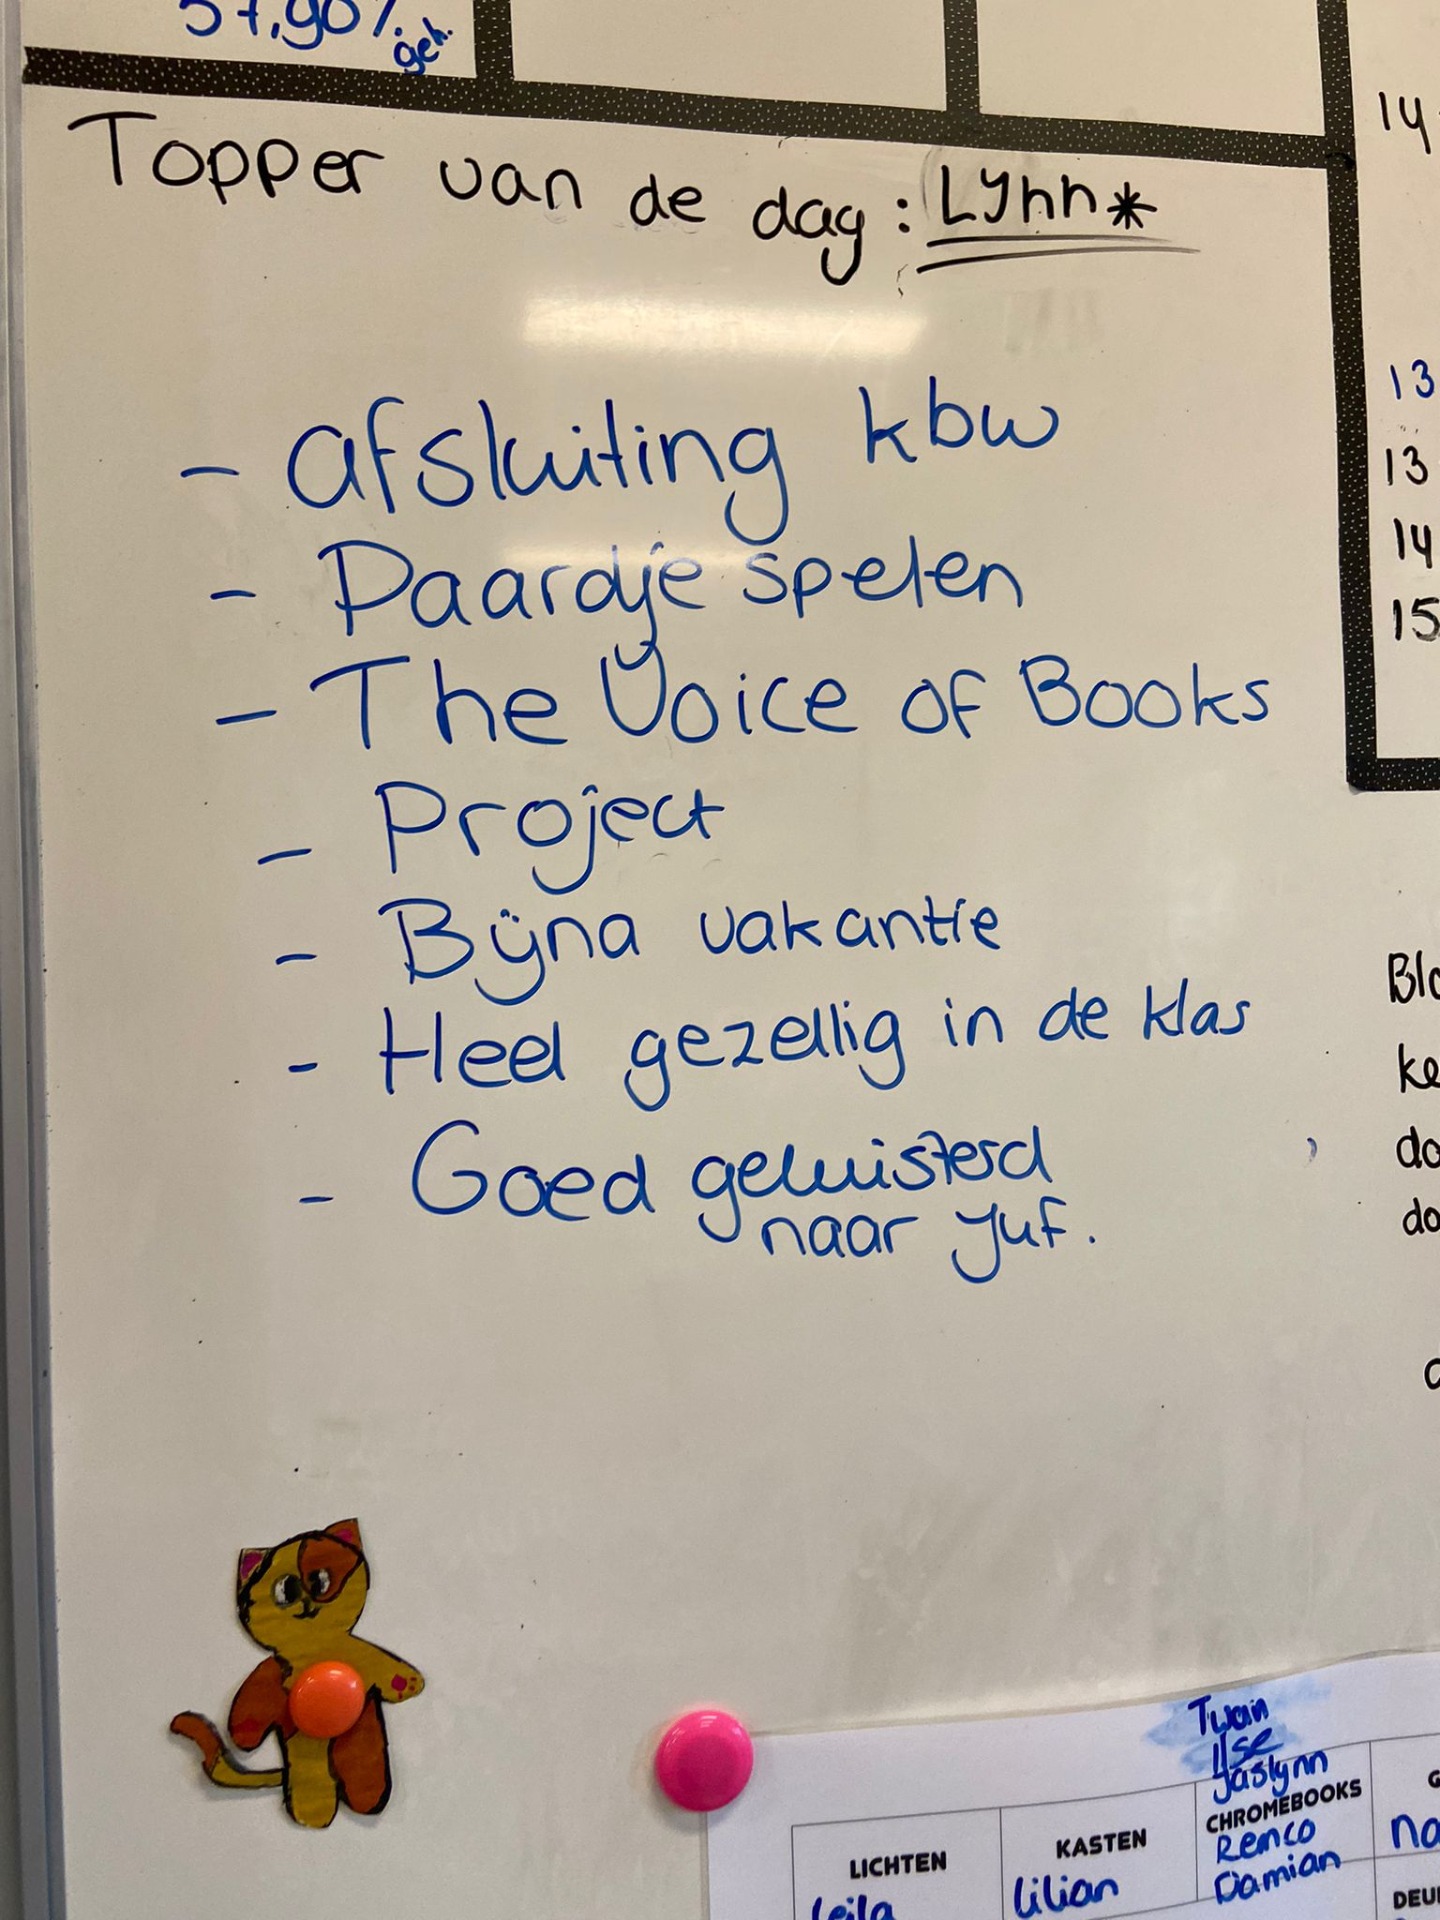 geh.
Topper van de dag: Lynn*
- afsluiting kbw
- Paardje spelen
- The Voice of Books
- Project
- Bijna vakantie
- Heel gezellig in de klas
- Goed geluisterd
naar juf.
14
13
13
14
15
Twan
Ilse
Jaslynn
LICHTEN
KASTEN
CHROMEBOOKS
Leila
Lilian
Remco
Damian